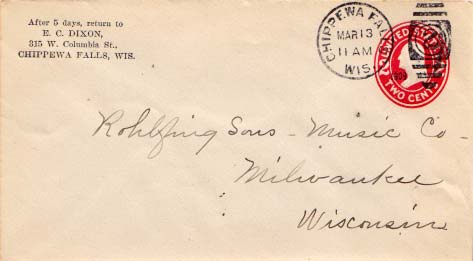 After 5 days, return to
E. C. DIXON,
315 W. Columbia St.,
CHIPPEWA FALLS, WIS.
CHIPPEWA FALLS
MAR 13
11 AM
WIS.
UNITED STATES
TWO CENTS
Rohlfing Sons - Music Co-
Milwaukee
Wisconsin